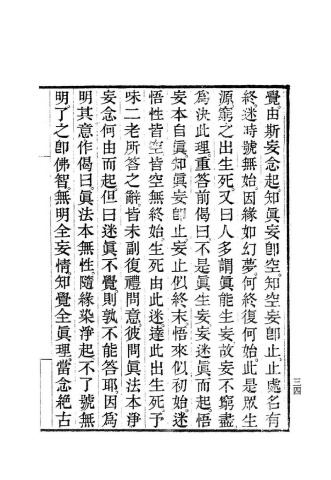 覺由斯妄念起知眞妄卽空知空妄卽止止處名有
終迷時號無始因緣如幻夢何終復何始此是眾生
源窮之出生死又曰人多謂眞能生妄故妄不窮盡
為決此理重答前偈曰不是眞生妄妄迷眞而起悟
妄本自眞知眞妄卽止妄止似終末悟來似初始迷
悟性皆空皆空無終始生死由此迷達此出生死予
味二老所答之辭皆未副復禮問意彼問眞法本淨
妄念何由而起但曰迷眞不覺則孰不能答耶因為
明其意作偈曰眞法本無性隨緣染淨起不了號無
明了之卽佛智無明全妄情知覺全眞理當念絕古
三四